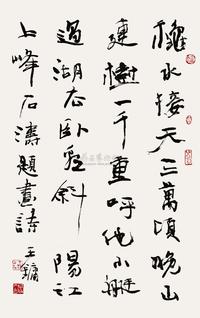 穐水接天三萬頃晚山
連樹一千重呼他小艇
過湖去卧看斜陽江
上峰石濤題畫詩 王鏞